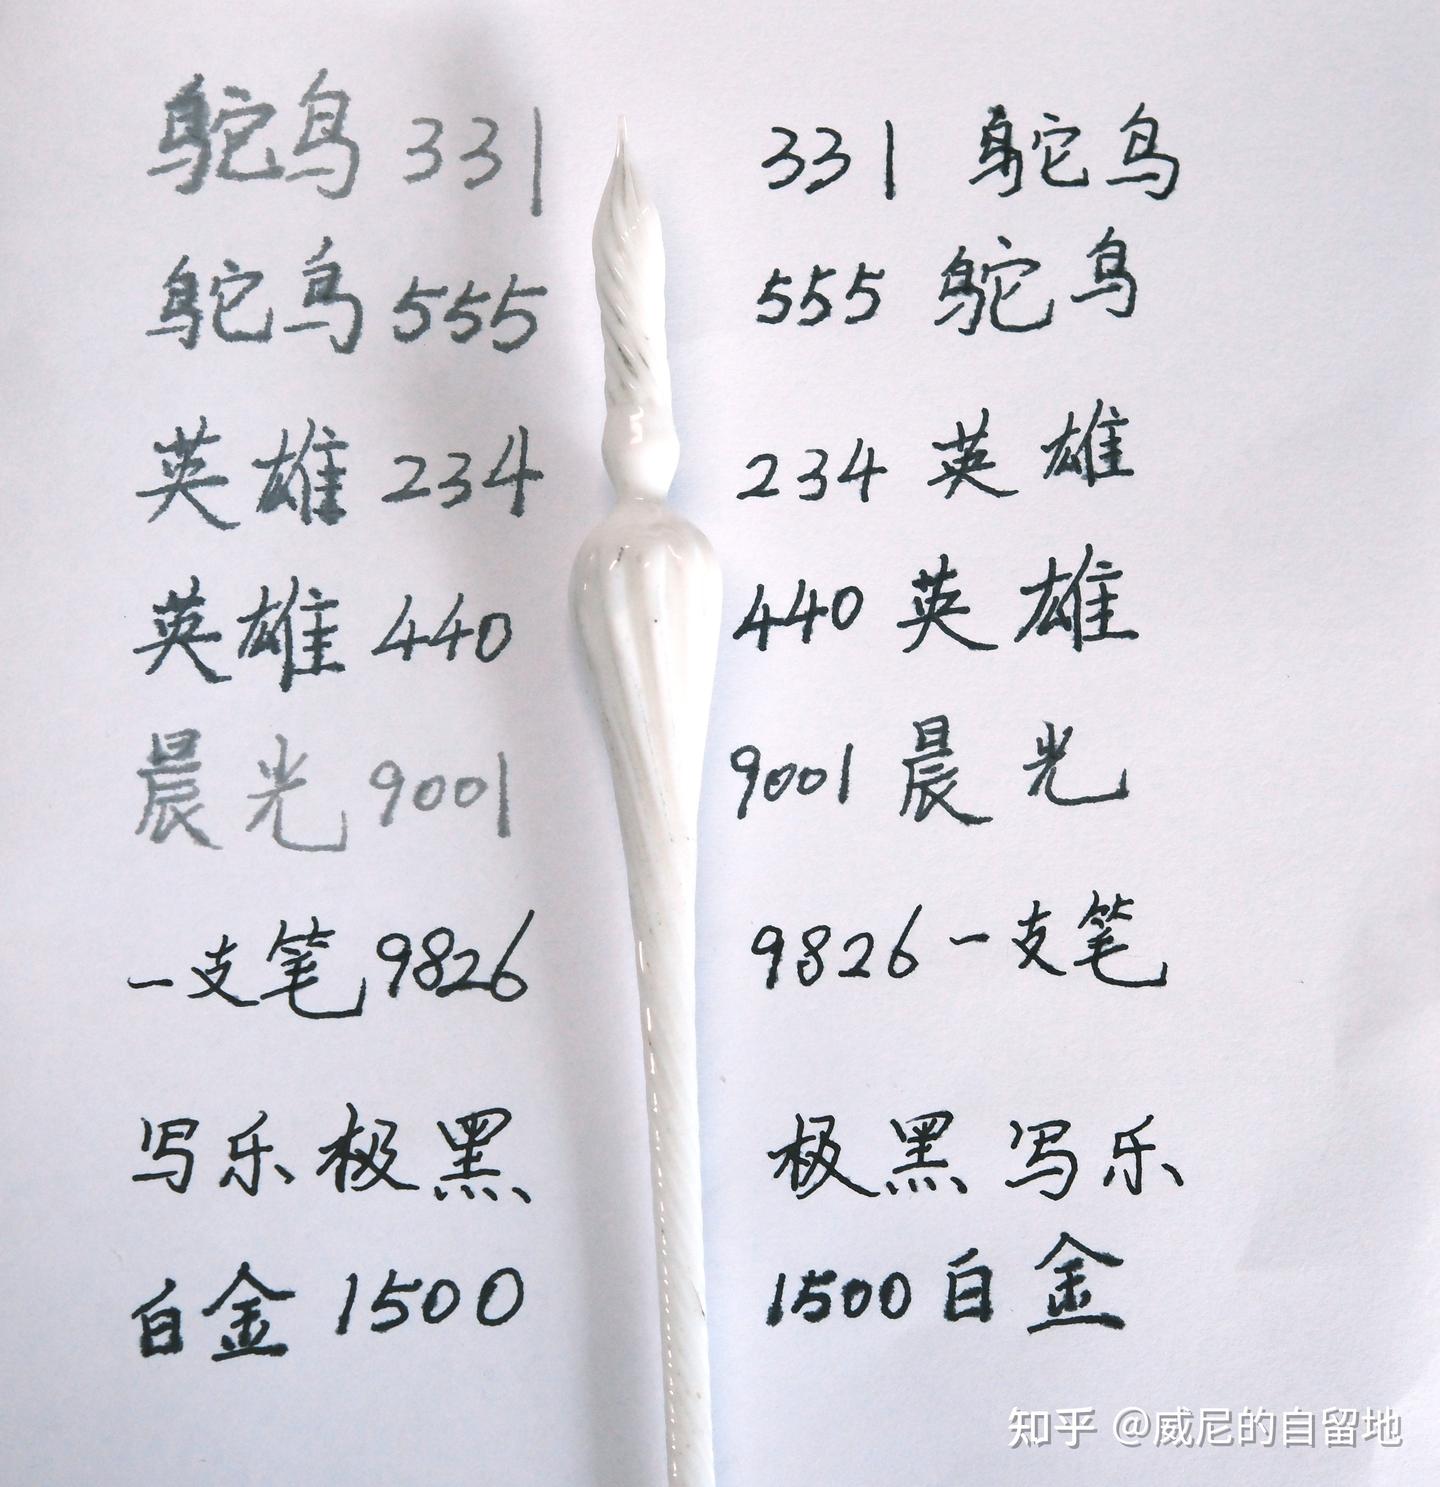 鸵鸟 331 331 鸵鸟
鸵鸟 555 555 鸵鸟
英雄 234 234 英雄
英雄 440 440 英雄
晨光 9001 9001 晨光
一支笔 9826 9826 一支笔
写乐极黑 极黑写乐
白金 1500 1500 白金
知乎 @威尼的自留地